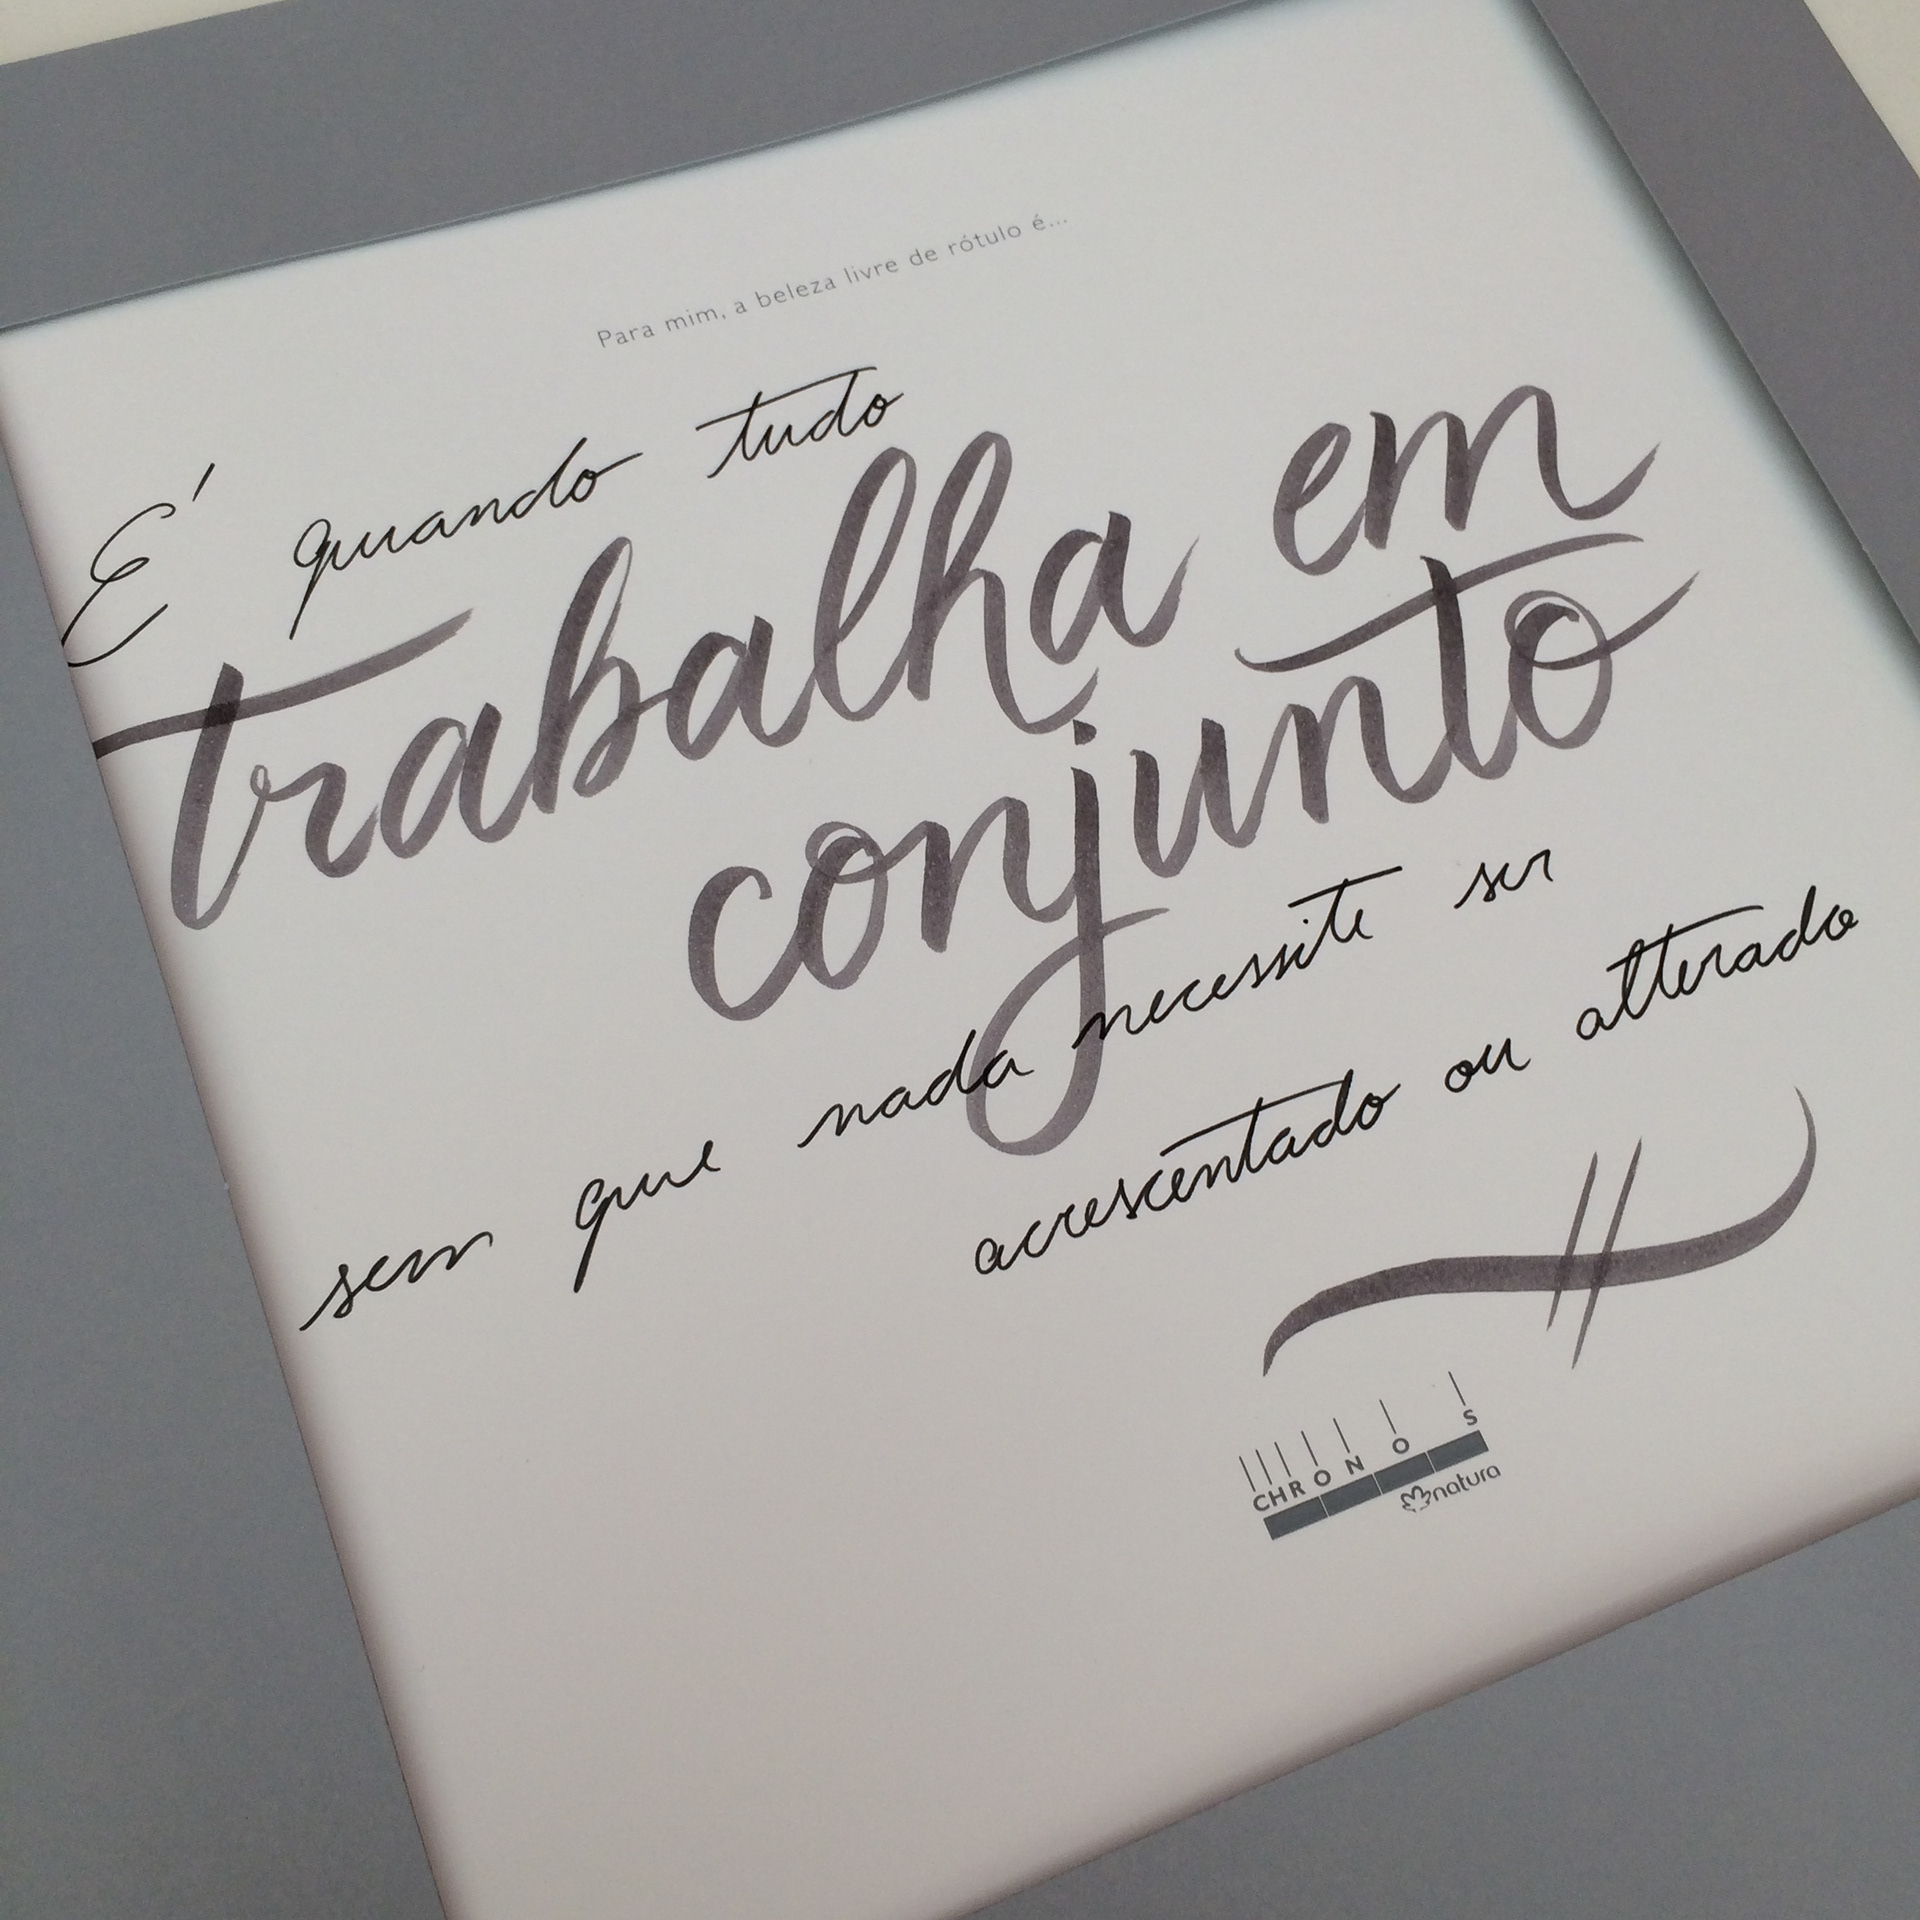 Para mim, a beleza livre de rótulo é...
É quando tudo
trabalha em
conjunto
sem que nada necessite ser
acrescentado ou alterado
CHRONOS
natura